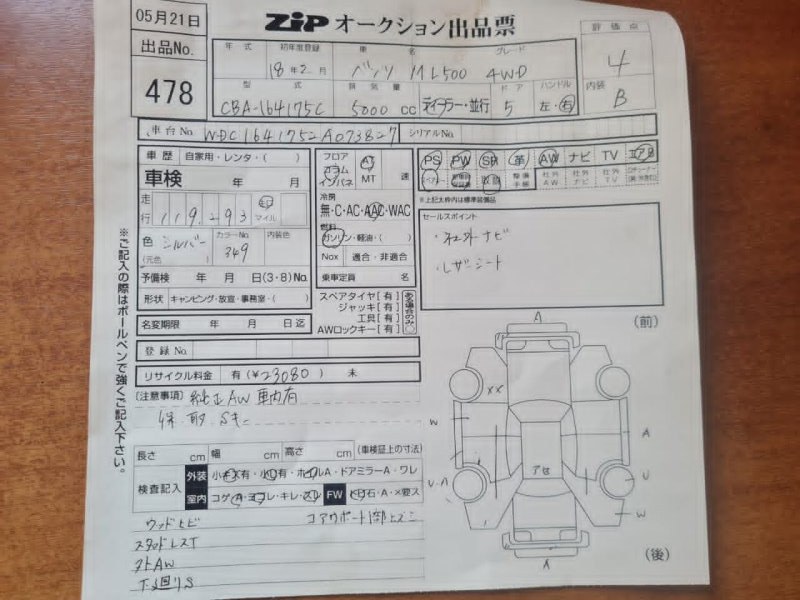 05月21日
ZIP オークション出品票
評価点
出品No.
478
年式 初年度登録 車名 グレード
18年2月 ベンツ ML500 4WD
4
型式 排気量 ドア ハンドル
CBA-164175C 5000cc ディーラー・並行 5 左・右
内装
B
車台No. WDC1641752A073827 シリアルNo.
車歴 自家用・レンタ・( )
フロア コラム インパネ
AT
MT 速
PS PW SR 革 AW ナビ TV エアB
車検 年 月
冷房
無・C・AC・AAC・WAC
※上記太枠内は標準装備品
走行 119,293 km マイル
燃料
ガソリン・軽油・( )
セールスポイント
色 シルバー (元色) カラーNo. 349 内装色
・社外ナビ
Nox 適合・非適合
・レザーシート
予備検 年 月 日(3・8)No.
乗車定員 名
形状 キャンピング・放宣・事務室・( )
スペアタイヤ[有]
ジャッキ[有]
工具[有]
AWロックキー[有]
ある場合のみ○
名変期限 年 月 日迄
(前)
登録No.
リサイクル料金 有(¥23080) 未
[注意事項] 純正AW車内有
保 取
長さ cm 幅 cm 高さ cm (車検証上の寸法)
検査記入
外装 小キズ有・小凹有・ホイルA・ドアミラーA・ワレ
室内 コゲA・ヨゴレ・キレ・スレ FW 飛石・A・×要ス
ウッドヒビ
スタッドレスT
下廻りS
(後)
※ご記入の際はボールペンで強くご記入下さい。
A
W
A
U・A
U
W
A